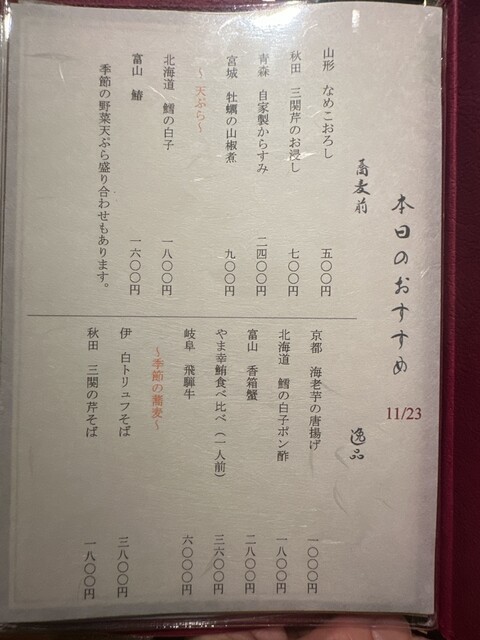 本日のおすすめ
11/23
蕎麦前
山形 なめこおろし 五〇〇円
秋田 三関芹のお浸し 七〇〇円
青森 自家製からすみ 二四〇〇円
宮城 牡蠣の山椒煮 九〇〇円
～天ぷら～
北海道 鱈の白子 一八〇〇円
富山 鰆 一六〇〇円
季節の野菜天ぷら盛り合わせもあります。
逸品
京都 海老芋の唐揚げ 一〇〇〇円
北海道 鱈の白子ポン酢 一八〇〇円
富山 香箱蟹 二八〇〇円
やま幸鮪食べ比べ(一人前) 三六〇〇円
岐阜 飛騨牛 六〇〇〇円
～季節の蕎麦～
伊 白トリュフそば 三八〇〇円
秋田 三関の芹そば 一八〇〇円